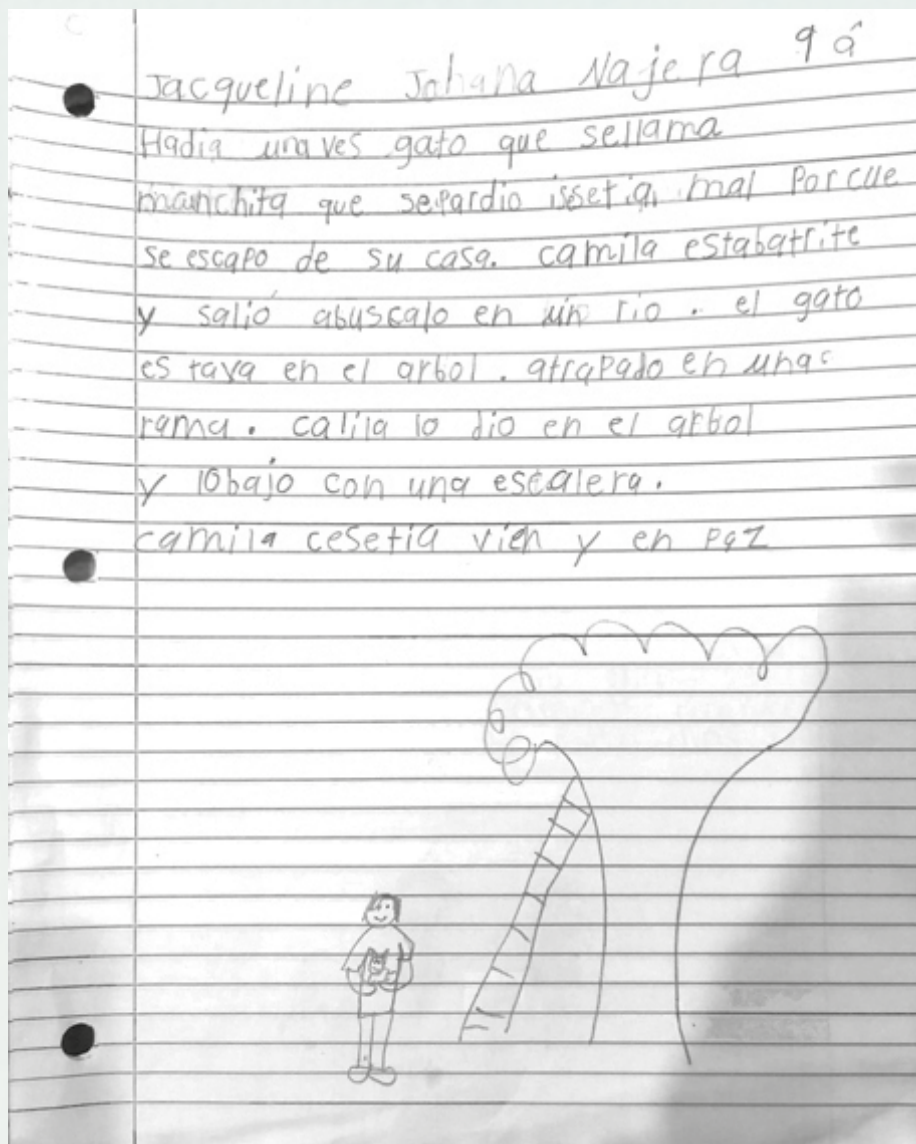 Jacqueline Johana Najera 9 á
Hadia unaves gato que sellama
manchita que separdio issetia mal Porcue
se escapo de su casa. camila estabatrite
y salió abuscalo en un rio. el gato
es tava en el arbol. atrapado en una
rama. calila lo dio en el arbol
y lobajo con una escalera.
camila cesetia vien y en paz